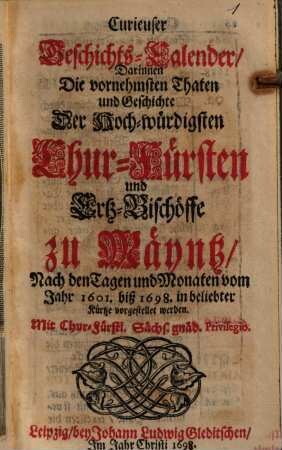 Curieuser
Geschichts-Calender/
Darinnen
Die vornehmsten Thaten
und Geschichte
Der Hoch-würdigsten
Chur-Fürsten
und
Ertz-Bischöffe
zu Mäyntz/
Nach den Tagen und Monaten vom
Jahr 1601. biß 1698. in beliebter
Kürtze vorgestellet werden.
Mit Chur-Fürstl. Sächs. gnäd. Privilegio.
Leipzig/ bey Johann Ludwig Gleditschen/
Im Jahr Christi 1698.